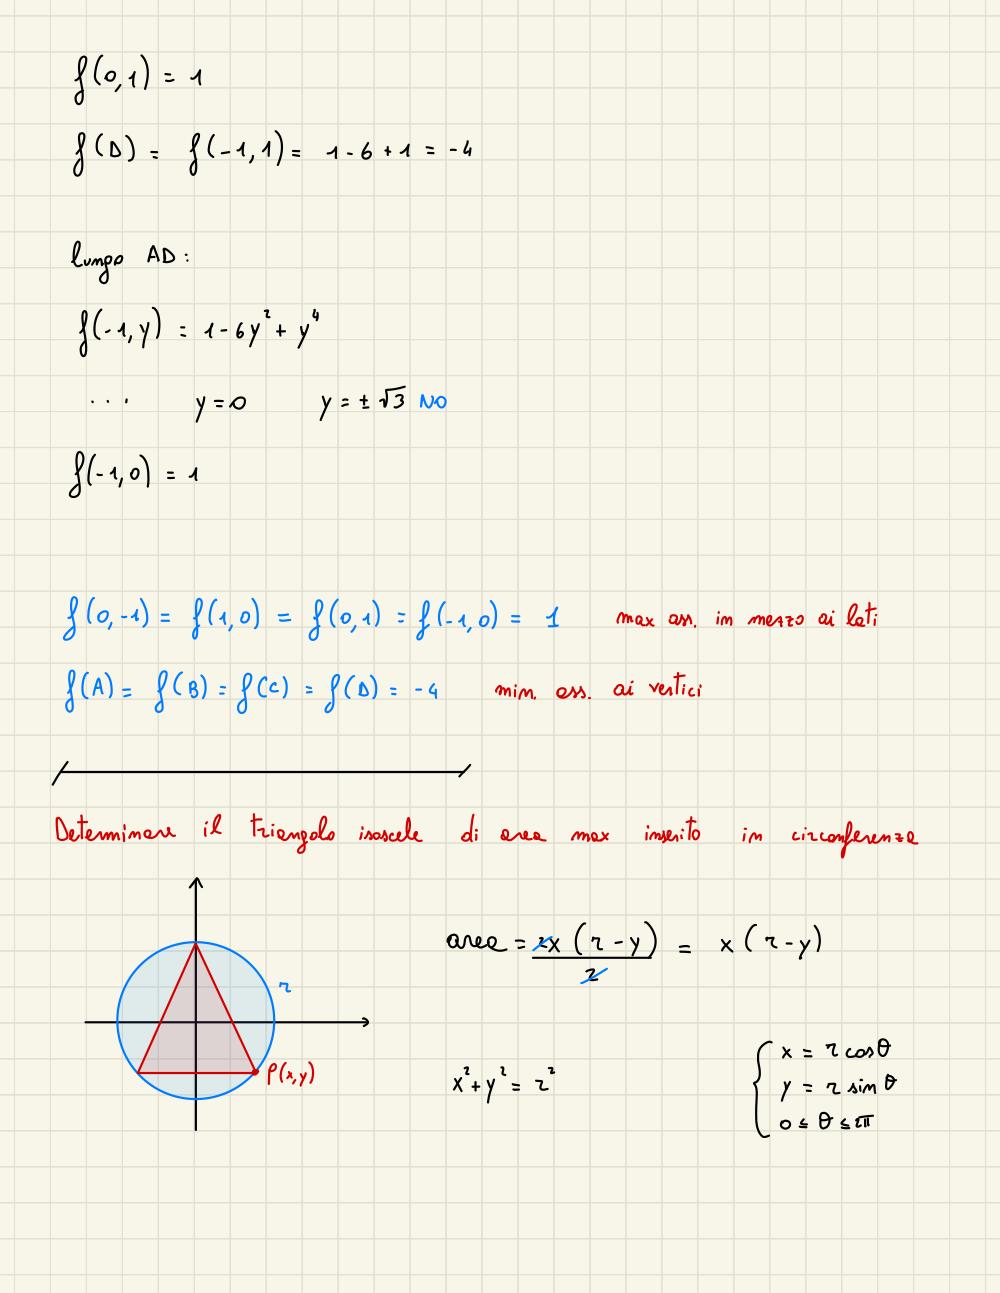 f(0,1) = 1
f(D) = f(-1,1) = 1 - 6 + 1 = -4
lungo AD:
f(-1,y) = 1 - 6y² + y⁴
... y = 0 y = ± √3 NO
f(-1,0) = 1
f(0,-1) = f(1,0) = f(0,1) = f(-1,0) = 1 max ass. in mezzo ai lati
f(A) = f(B) = f(C) = f(D) = -4 min. ass. ai vertici
Determinare il triangolo isoscele di area max inserito in circonferenza
area = 2x (r-y) / 2 = x (r-y)
r
P(x,y)
x² + y² = r²
x = r cos θ
y = r sin θ
0 ≤ θ ≤ 2π